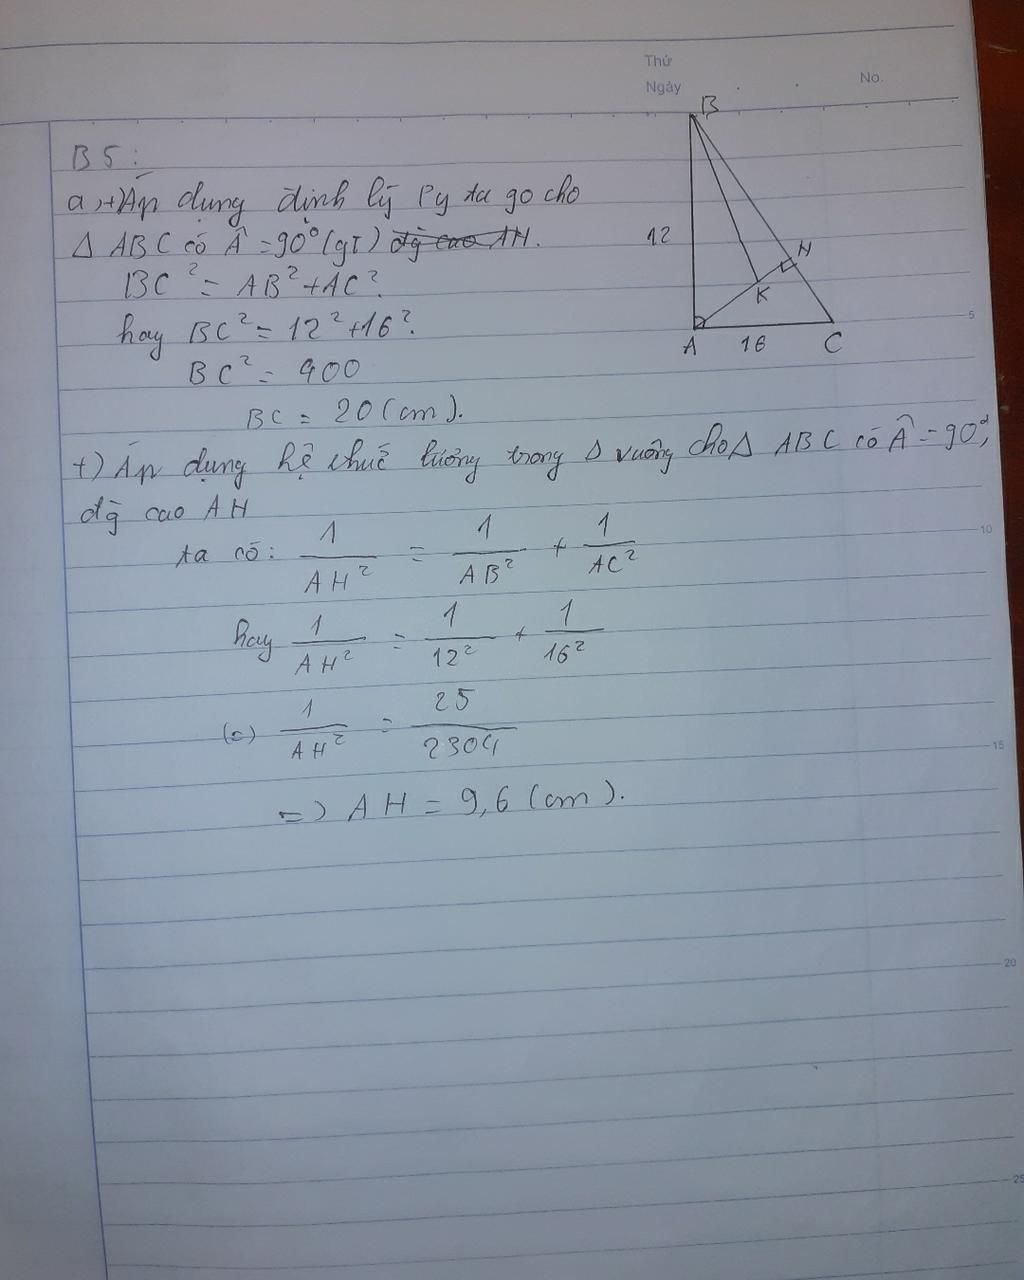 Thứ
Ngày
No.
B5:
a, +) Áp dụng định lý Py ta go cho
Δ ABC có Â = 90° (gt) đg cao AH.
BC² = AB² + AC².
hay BC² = 12² + 16².
BC² = 400
BC = 20 (cm).
+) Áp dụng hệ thức lượng trong Δ vuông cho Δ ABC có Â = 90°,
đg cao AH
ta có: 1/AH² = 1/AB² + 1/AC²
hay 1/AH² = 1/12² + 1/16²
(=) 1/AH² = 25/2304
=> AH = 9,6 (cm).
B
12
H
K
A
16
C
5
10
15
20
25